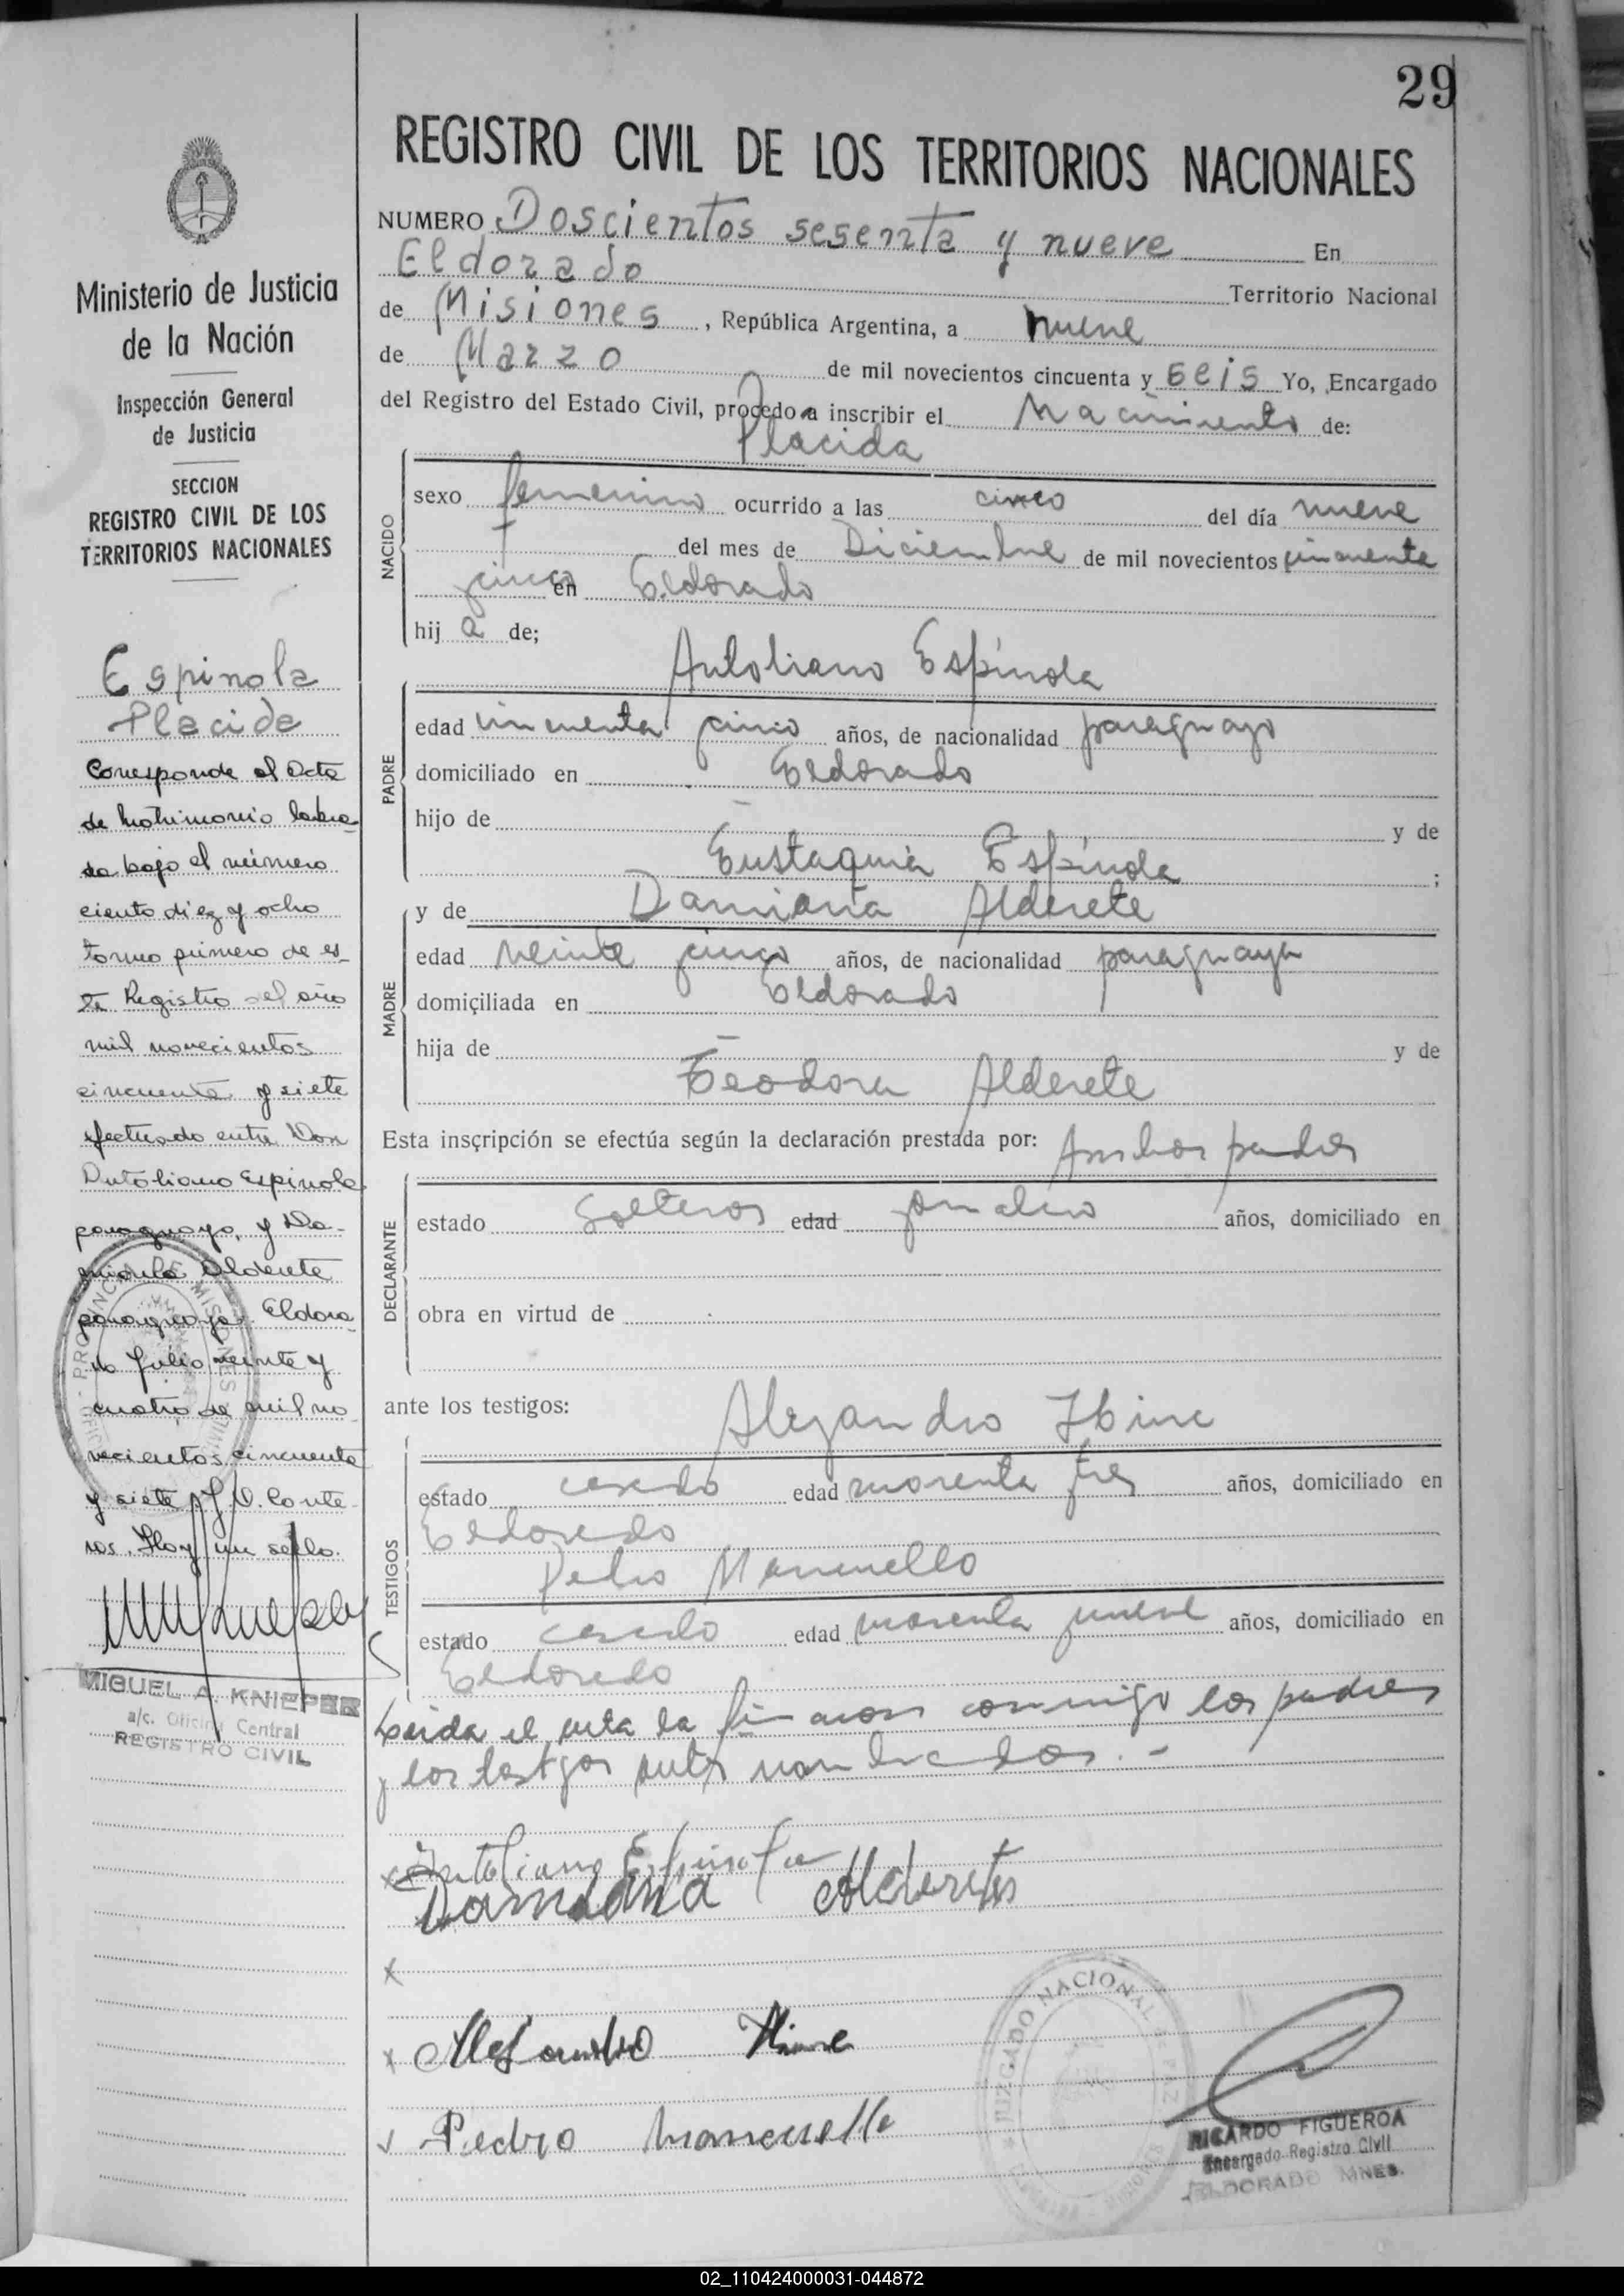 29
REGISTRO CIVIL DE LOS TERRITORIOS NACIONALES
NUMERO Doscientos sesenta y nueve En
Eldorado Territorio Nacional
de Misiones, República Argentina, a nueve
de Marzo de mil novecientos cincuenta y seis Yo, Encargado
del Registro del Estado Civil, procedo a inscribir el Nacimiento de:
Placida
NACIDO
sexo femenino ocurrido a las cinco del día nueve
del mes de Diciembre de mil novecientos cincuenta
cinco en Eldorado
hij a de;
Antoliano Espínola
PADRE
edad cincuenta cinco años, de nacionalidad paraguayo
domiciliado en Eldorado
hijo de y de
Eustaquia Espínola ;
y de Damiana Alderete
MADRE
edad veinte cinco años, de nacionalidad paraguaya
domiciliada en Eldorado
hija de y de
Teodora Alderete
Esta inscripción se efectúa según la declaración prestada por: Ambos padres
DECLARANTE
estado Solteros edad jornalero años, domiciliado en
obra en virtud de
ante los testigos:
Alejandro
TESTIGOS
estado casado edad cuarenta tres años, domiciliado en
Eldorado
Pedro
estado casado edad cuarenta nueve años, domiciliado en
Eldorado
Leida el acta la firmaron conmigo los padres
y los testigos antes nombrados.-
Antoliano Espinola
Damiana Alderete
x
x Alejandro
Pedro
JUZGADO NACIONAL DE PAZ
RICARDO FIGUEROA
Encargado Registro Civil
ELDORADO MNES.
Ministerio de Justicia
de la Nación
Inspección General
de Justicia
SECCION
REGISTRO CIVIL DE LOS
TERRITORIOS NACIONALES
Espinola
Placida
Corresponde al Acta
de Matrimonio labra-
da bajo el número
ciento diez y ocho
tomo primero de es-
te Registro del año
mil novecientos
cincuenta y siete
efectuado entre Don
Antoliano Espinola
paraguayo, y Da-
miana Alderete
paraguaya. Eldora-
do Julio veinte y
cuatro de mil no-
vecientos cincuenta
y siete
Hay un sello.
PROVINCIA DE MISIONES
MIGUEL A. KNIEPPER
a/c. Oficina Central
REGISTRO CIVIL
02_110424000031-044872